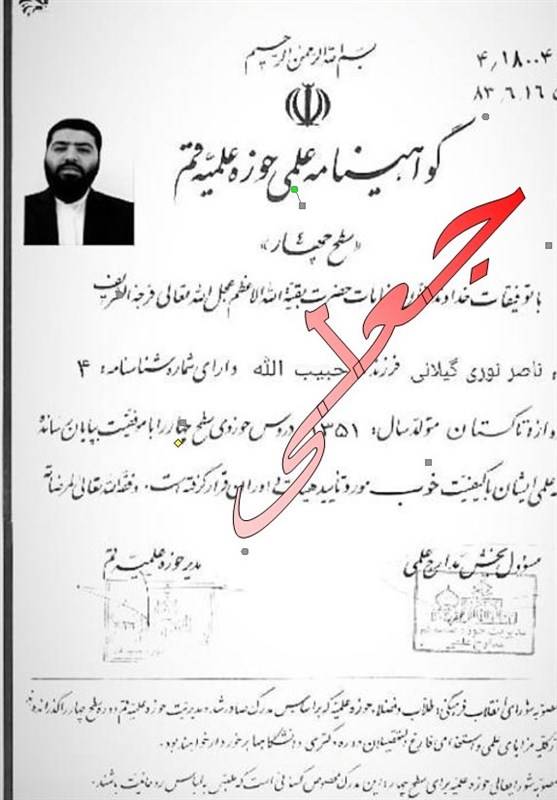 بسم الله الرحمن الرحیم
۴٫۱۸۰۰۴
۸۳٫۶٫۱۶
گواهینامه علمی حوزه علمیّه قم
«سطح چهار ۴»
با توفیقات خداوند حضرت بقیّة الله الاعظم عجل الله تعالی فرجه الشریف
ناصر نوری گیلانی فرزند حبیب الله دارای شماره شناسنامه: ۴
تاکستان متولد سال: ۱۳۵۱ دروس حوزوی سطح چهار را با موفقیت بپایان رسانده
علمی ایشان با کیفیت خوب مورد تأیید قرار گرفته است. وفقه الله تعالی لمرضاته
جعلی
مسؤول بخش مدارج علمی
مدیر حوزه علمیّه قم
مدیریت حوزه علمیه قم
مدارج علمی
مصوبه شورای انقلاب فرهنگی: طلاب و فضلاء حوزه علمیه که بر اساس مدرک صادر شده مدیریت حوزه علمیه قم دوره سطح چهار را گذرانده
از کلیه مزایای علمی و استخدامی فارغ التحصیلان دوره دکتری دانشگاهها برخوردار خواهند بود.
شورای عالی حوزه علمیه برای سطح چهار: این مدرک مخصوص کسانی است که ملبس به لباس روحانیت باشند.